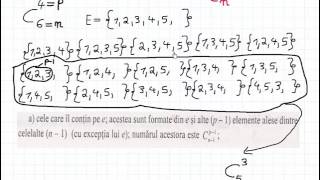 C 4=p 6=m E={1,2,3,4,5, }
{1,2,3,4} {1,2,3,5} {2,3,4,5} {1,3,4,5} {1,2,4,5}
{1,2,3, } {1,2,4, } {1,2,5, } {1,3,4, } {1,3,5, }
{1,4,5, } {2,4,5, } {3,4,5, } {2,3,4, }
a) cele care îl conțin pe e; acestea sunt formate din e și alte (p – 1) elemente alese dintre
celelalte (n – 1) (cu excepția lui e); numărul acestora este C p−1 n−1 ;
C 3 5